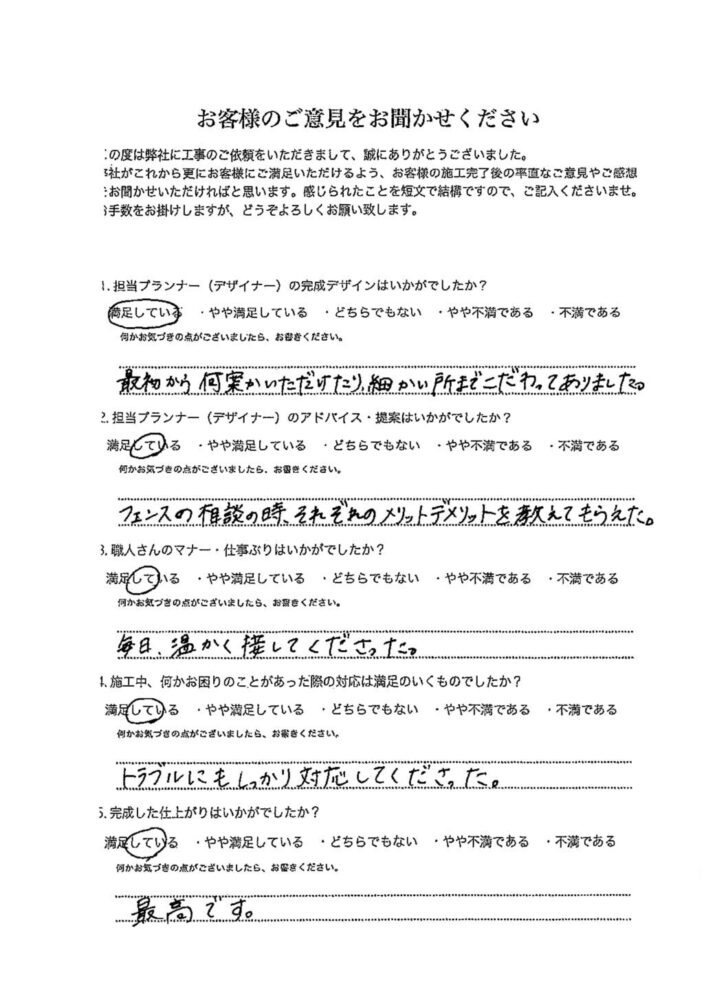 お客様のご意見をお聞かせください
の度は弊社に工事のご依頼をいただきまして、誠にありがとうございました。
社がこれから更にお客様にご満足いただけるよう、お客様の施工完了後の率直なご意見やご感想
お聞かせいただければと思います。感じられたことを短文で結構ですので、ご記入くださいませ。
手数をお掛けしますが、どうぞよろしくお願い致します。
1. 担当プランナー（デザイナー）の完成デザインはいかがでしたか？
満足している ・やや満足している ・どちらでもない ・やや不満である ・不満である
何かお気づきの点がございましたら、お書きください。
最初から何案かいただけたり、細かい所までこだわってありました。
2. 担当プランナー（デザイナー）のアドバイス・提案はいかがでしたか？
満足している ・やや満足している ・どちらでもない ・やや不満である ・不満である
何かお気づきの点がございましたら、お書きください。
フェンスの相談の時、それぞれのメリットデメリットを教えてもらえた。
3. 職人さんのマナー・仕事ぶりはいかがでしたか？
満足している ・やや満足している ・どちらでもない ・やや不満である ・不満である
何かお気づきの点がございましたら、お書きください。
毎日、温かく接してくださった。
4. 施工中、何かお困りのことがあった際の対応は満足のいくものでしたか？
満足している ・やや満足している ・どちらでもない ・やや不満である ・不満である
何かお気づきの点がございましたら、お書きください。
トラブルにもしっかり対応してくださった。
5. 完成した仕上がりはいかがでしたか？
満足している ・やや満足している ・どちらでもない ・やや不満である ・不満である
何かお気づきの点がございましたら、お書きください。
最高です。